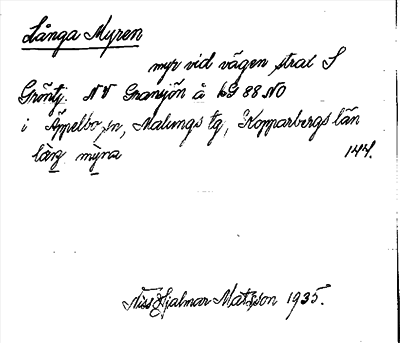 Långa Myren
myr vid vägen, strax S
Gröntj. NV Gransjön å kG 88 NO
i Äppelbo, sn, Malungs tg, Kopparbergs län
mýra 144.
Niss Hjalmar Matsson 1935.